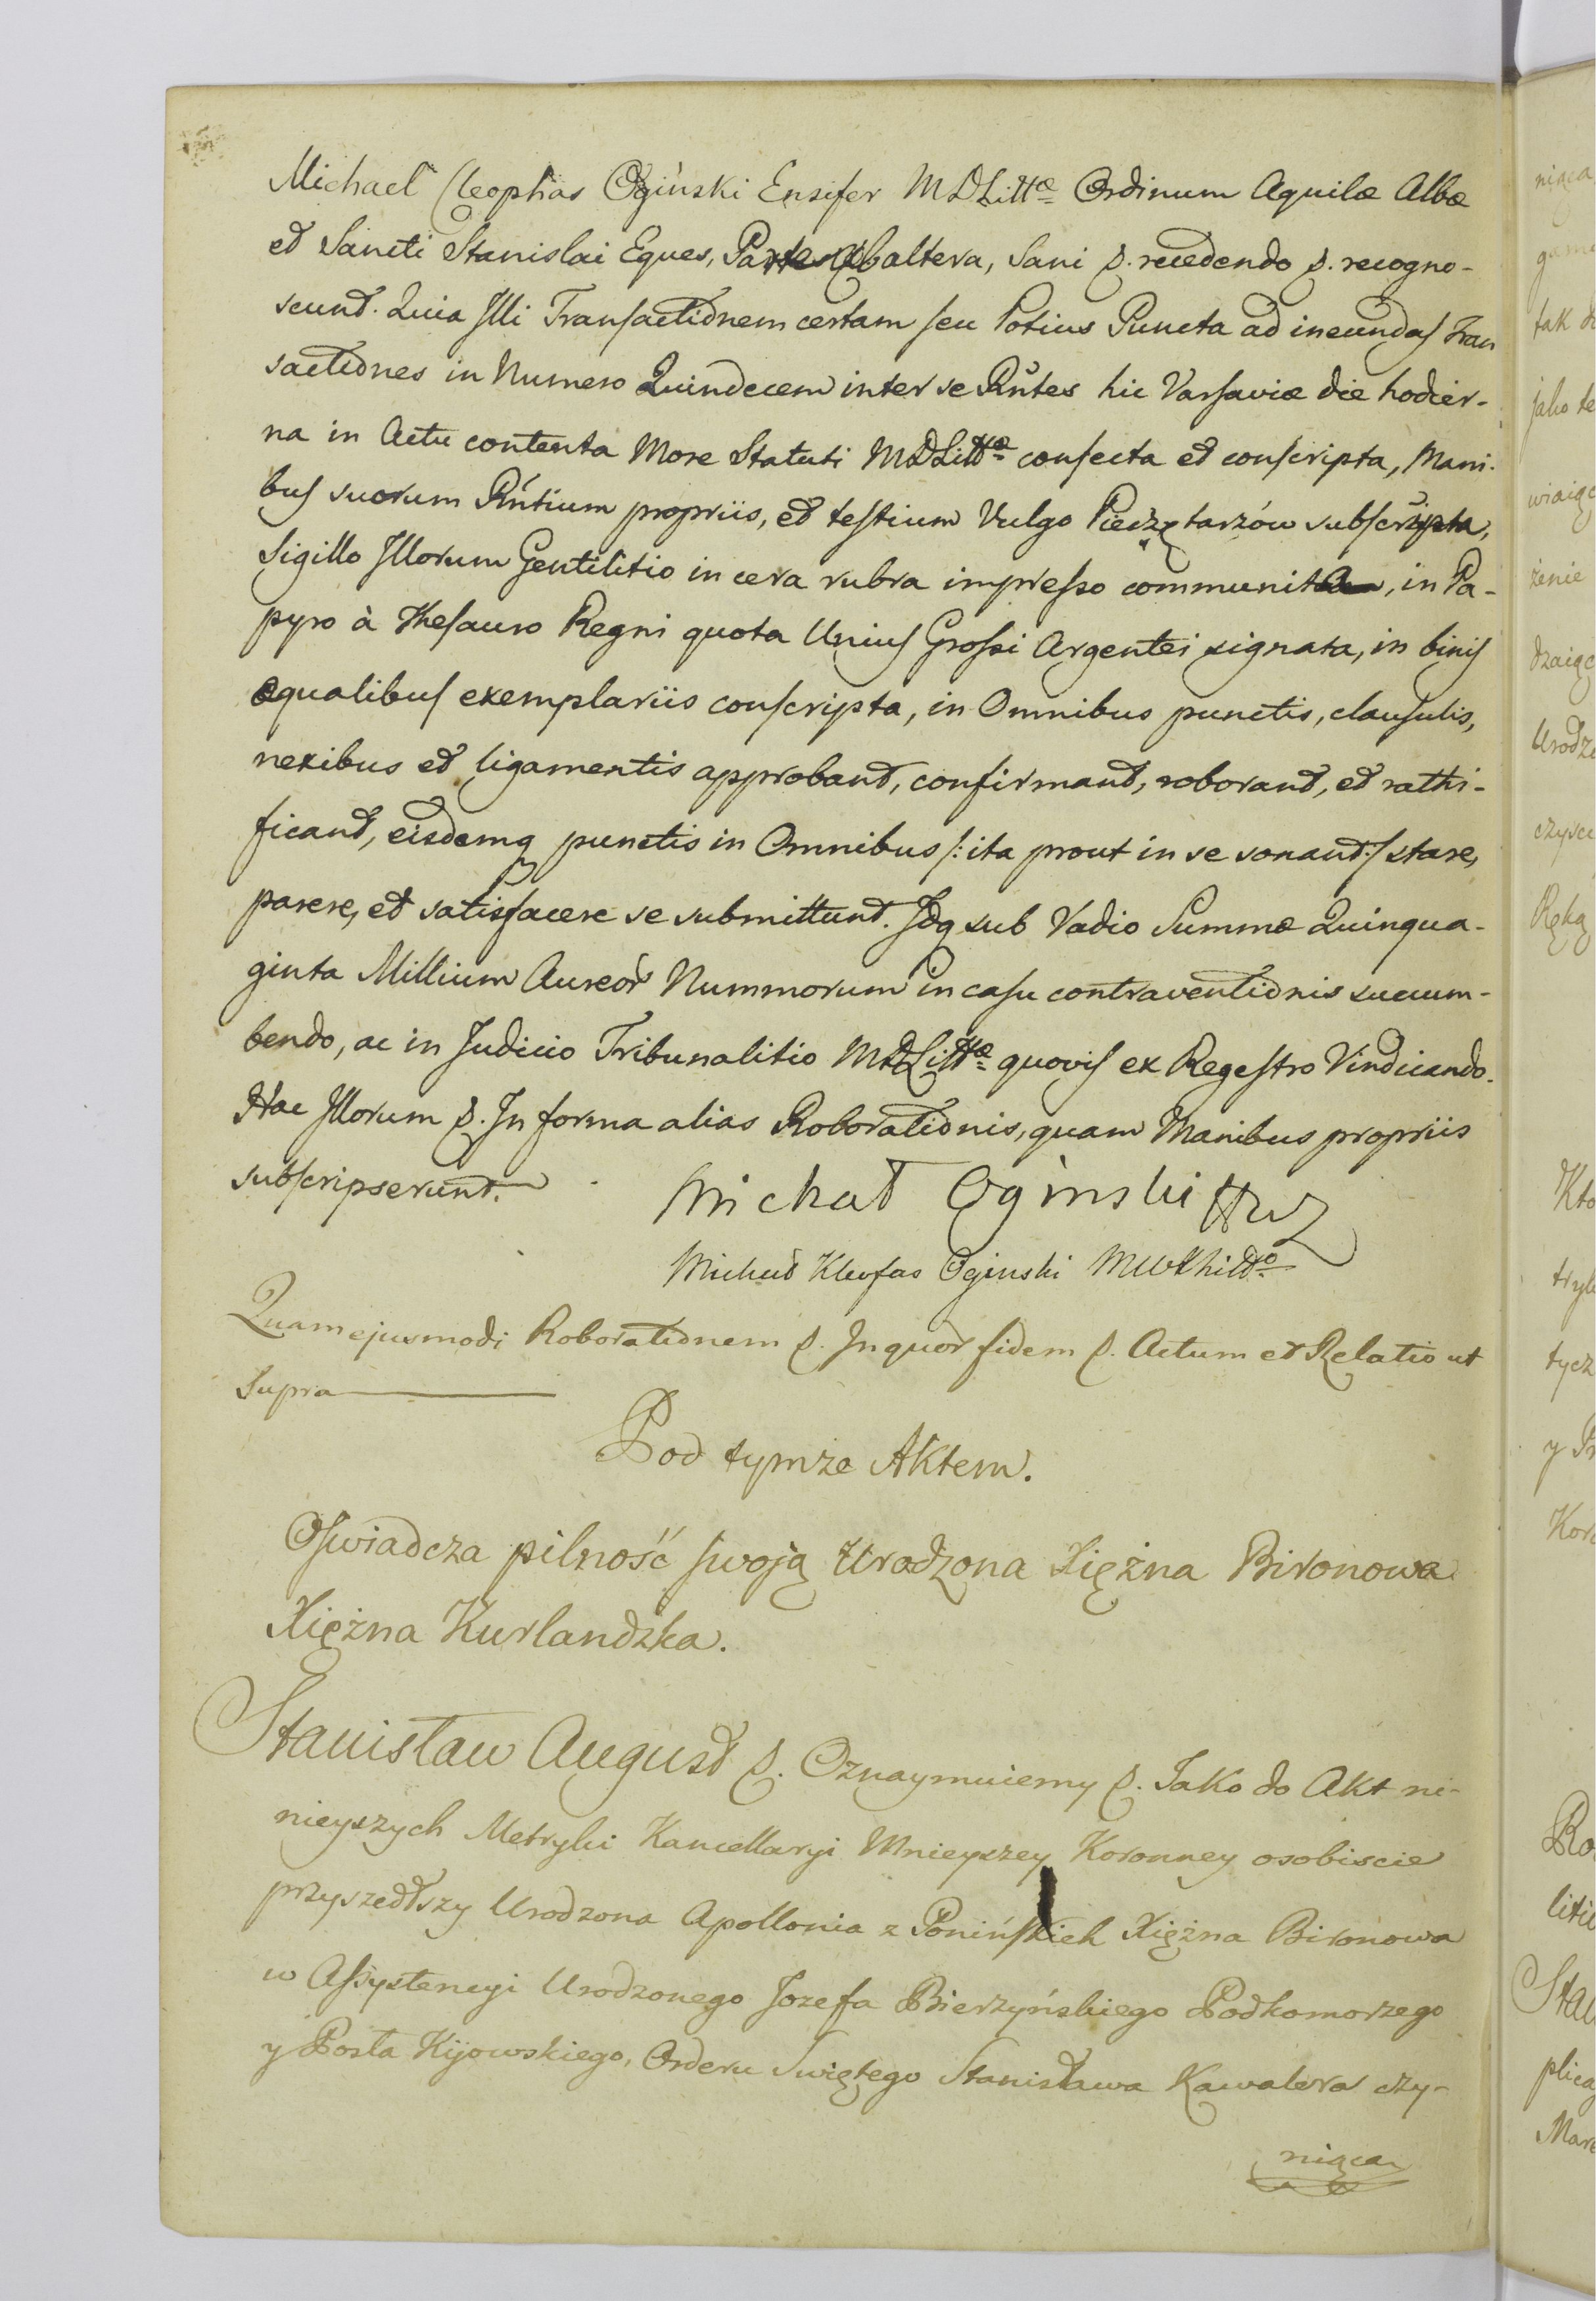 Michael Cleophas Ogiński Ensifer MDLittæ Ordinum Aquilæ Albæ
et Sancti Stanislai Eques, Partes Abaltera, Sani &. recedendo &. recogno-
scunt. Quia Illi Transactionem certam seu Potius Puncta ad ineundas Tran
sactiones in Numero Quindecem inter se Rntes hic Varsaviæ die hodier-
na in Actu contenta More Statuti MDLittæ confecta et conscripta, Mani-
bus suorum Rntium propriis, et testium Vulgo Pieczętarzów subscripta,
Sigillo Illorum Gentilitio in cera rubra impresso communita, in Pa-
pyro à Thesauro Regni quota Unius Grossi Argentei signata, in binis
æqualibus exemplariis conscripta, in Omnibus punctis, clausulis,
nexibus et ligamentis approbant, confirmant, roborant, et rathi-
ficant, eisdemq punctis in Omnibus /: ita prout in se sonant :/ stare,
parere, et satisfacere se submittunt. Idq sub Vadio Summæ Quinqua-
ginta Millium Aureor Nummorum in casu contraventionis succum-
bendo, ac in Judicio Tribunalitio MDLittæ quovis ex Regestro Vindicando.
Hac Illorum &. In forma alias Roborationis, quam Manibus propriis
subscripserunt.
Michał Ogiński HWL
Michał Kleofas Oginski MWXLitto
Quam ejusmodi Roborationem &. In quor fidem &. Actum et Relatio ut
Supra
Pod tymże Aktem.
Oswiadcza pilność swoją Urodzona Xiężna Bironowa
Xiężna Kurlandzka.
Stanisław August &. Oznaymuiemy &. Jako do Akt ni-
nieyszych Metryki Kancellaryi Mnieyszey Koronney osobiscie
przyszedłszy Urodzona Apollonia z Ponińskich Xiężna Bironowa
w Assystencyi Urodzonego Jozefa Bierzyńskiego Podkomorzego
y Posła Kijowskiego, Orderu Swiętego Stanisława Kawalera czy-
niąca